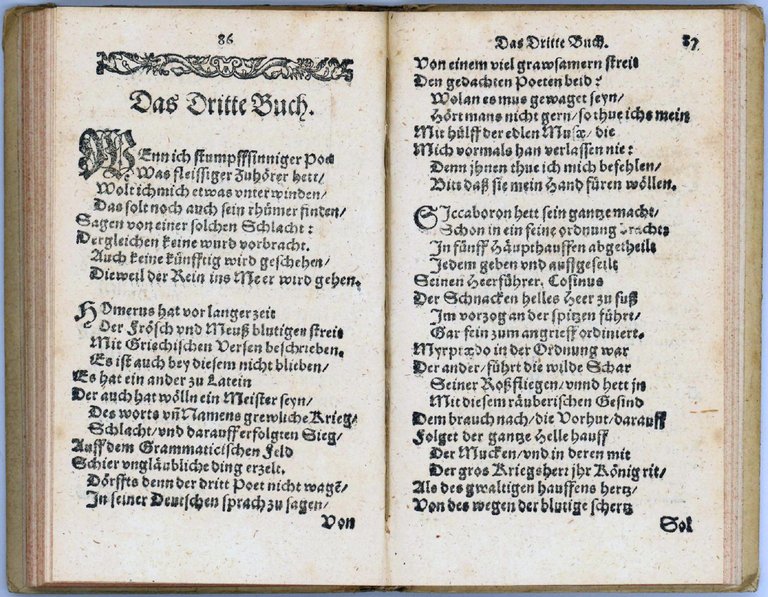 86
Das Dritte Buch.
WEnn ich stumpffsinniger Poet
Was fleissiger Zuhörer hett/
Wolt ich mich etwas vnterwinden/
Das solt noch auch sein rhümer finden/
Sagen von einer solchen Schlacht:
Dergleichen keine wurd vorbracht.
Auch keine künfftig wird geschehen/
Dieweil der Rein ins Meer wird gehen.
HOmerus hat vor langer zeit
Der Frösch vnd Meuß blutigen streit
Mit Griechischen Versen beschrieben.
Es ist auch bey diesem nicht blieben/
Es hat ein ander zu Latein
Der auch hat wölln ein Meister seyn/
Des worts vñ Namens grewliche Krieg/
Schlacht/vnd darauff erfolgten Sieg/
Auff dem Grammaticischen Feld
Schier vngläubliche ding erzelt.
Dörffts denn der dritt Poet nicht wagẽ/
In seiner Deutschen sprach zu sagen/
Von
Das Dritte Buch. 87
Von einem viel grawsamern streit
Den gedachten Poeten beid?
Wolan es mus gewaget seyn/
Hört mans nicht gern/so thue ichs mein
Mit hülff der edlen Musæ/die
Mich vormals han verlassen nie:
Denn jhnen thue ich mich befehlen/
Bitt daß sie mein Hand füren wöllen.
SIccaboron hett sein gantze macht/
Schon in ein feine ordnung bracht/
In fünff Häupthauffen abgetheilt
Jedem geben vnd auffgeseilt
Seinen Heerführer. Cosinus
Der Schnacken helles Heer zu fuß
Im vorzog an der spitzen führt/
Gar fein zum angrieff ordiniert.
Myrprædo in der Ordnung war
Der ander/führt die wilde Schar
Seiner Roßfliegen/vnnd hett in
Mit diesem räuberischen Gesind
Dem brauch nach/die Vorhut/darauff
Folget der gantze Helle hauff
Der Mucken/vnd in deren mit
Der gros Kriegsherr jhr König rit/
Als des gwaltigen hauffens hertz/
Von des wegen der blutige schertz
Sol